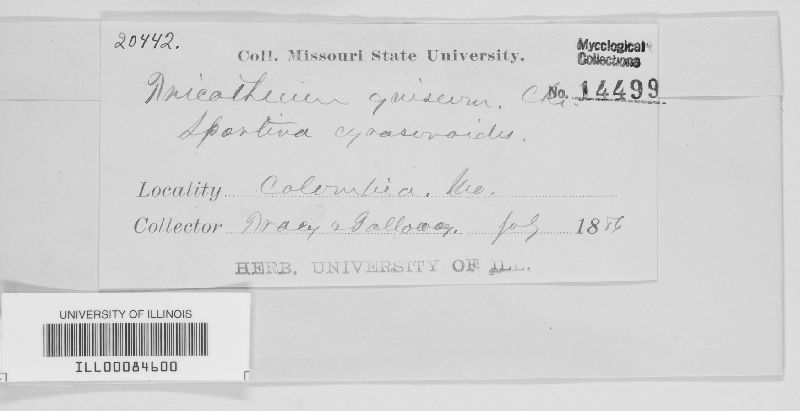 20442.
Coll. Missouri State University.
Mycological Collections
No. 14499
griseum.
Spartina cynosuroides.
Locality Columbia. Mo.
Collector Tracy & Galloway. July 1886
HERB. UNIVERSITY OF ILL.
UNIVERSITY OF ILLINOIS
ILL00084600